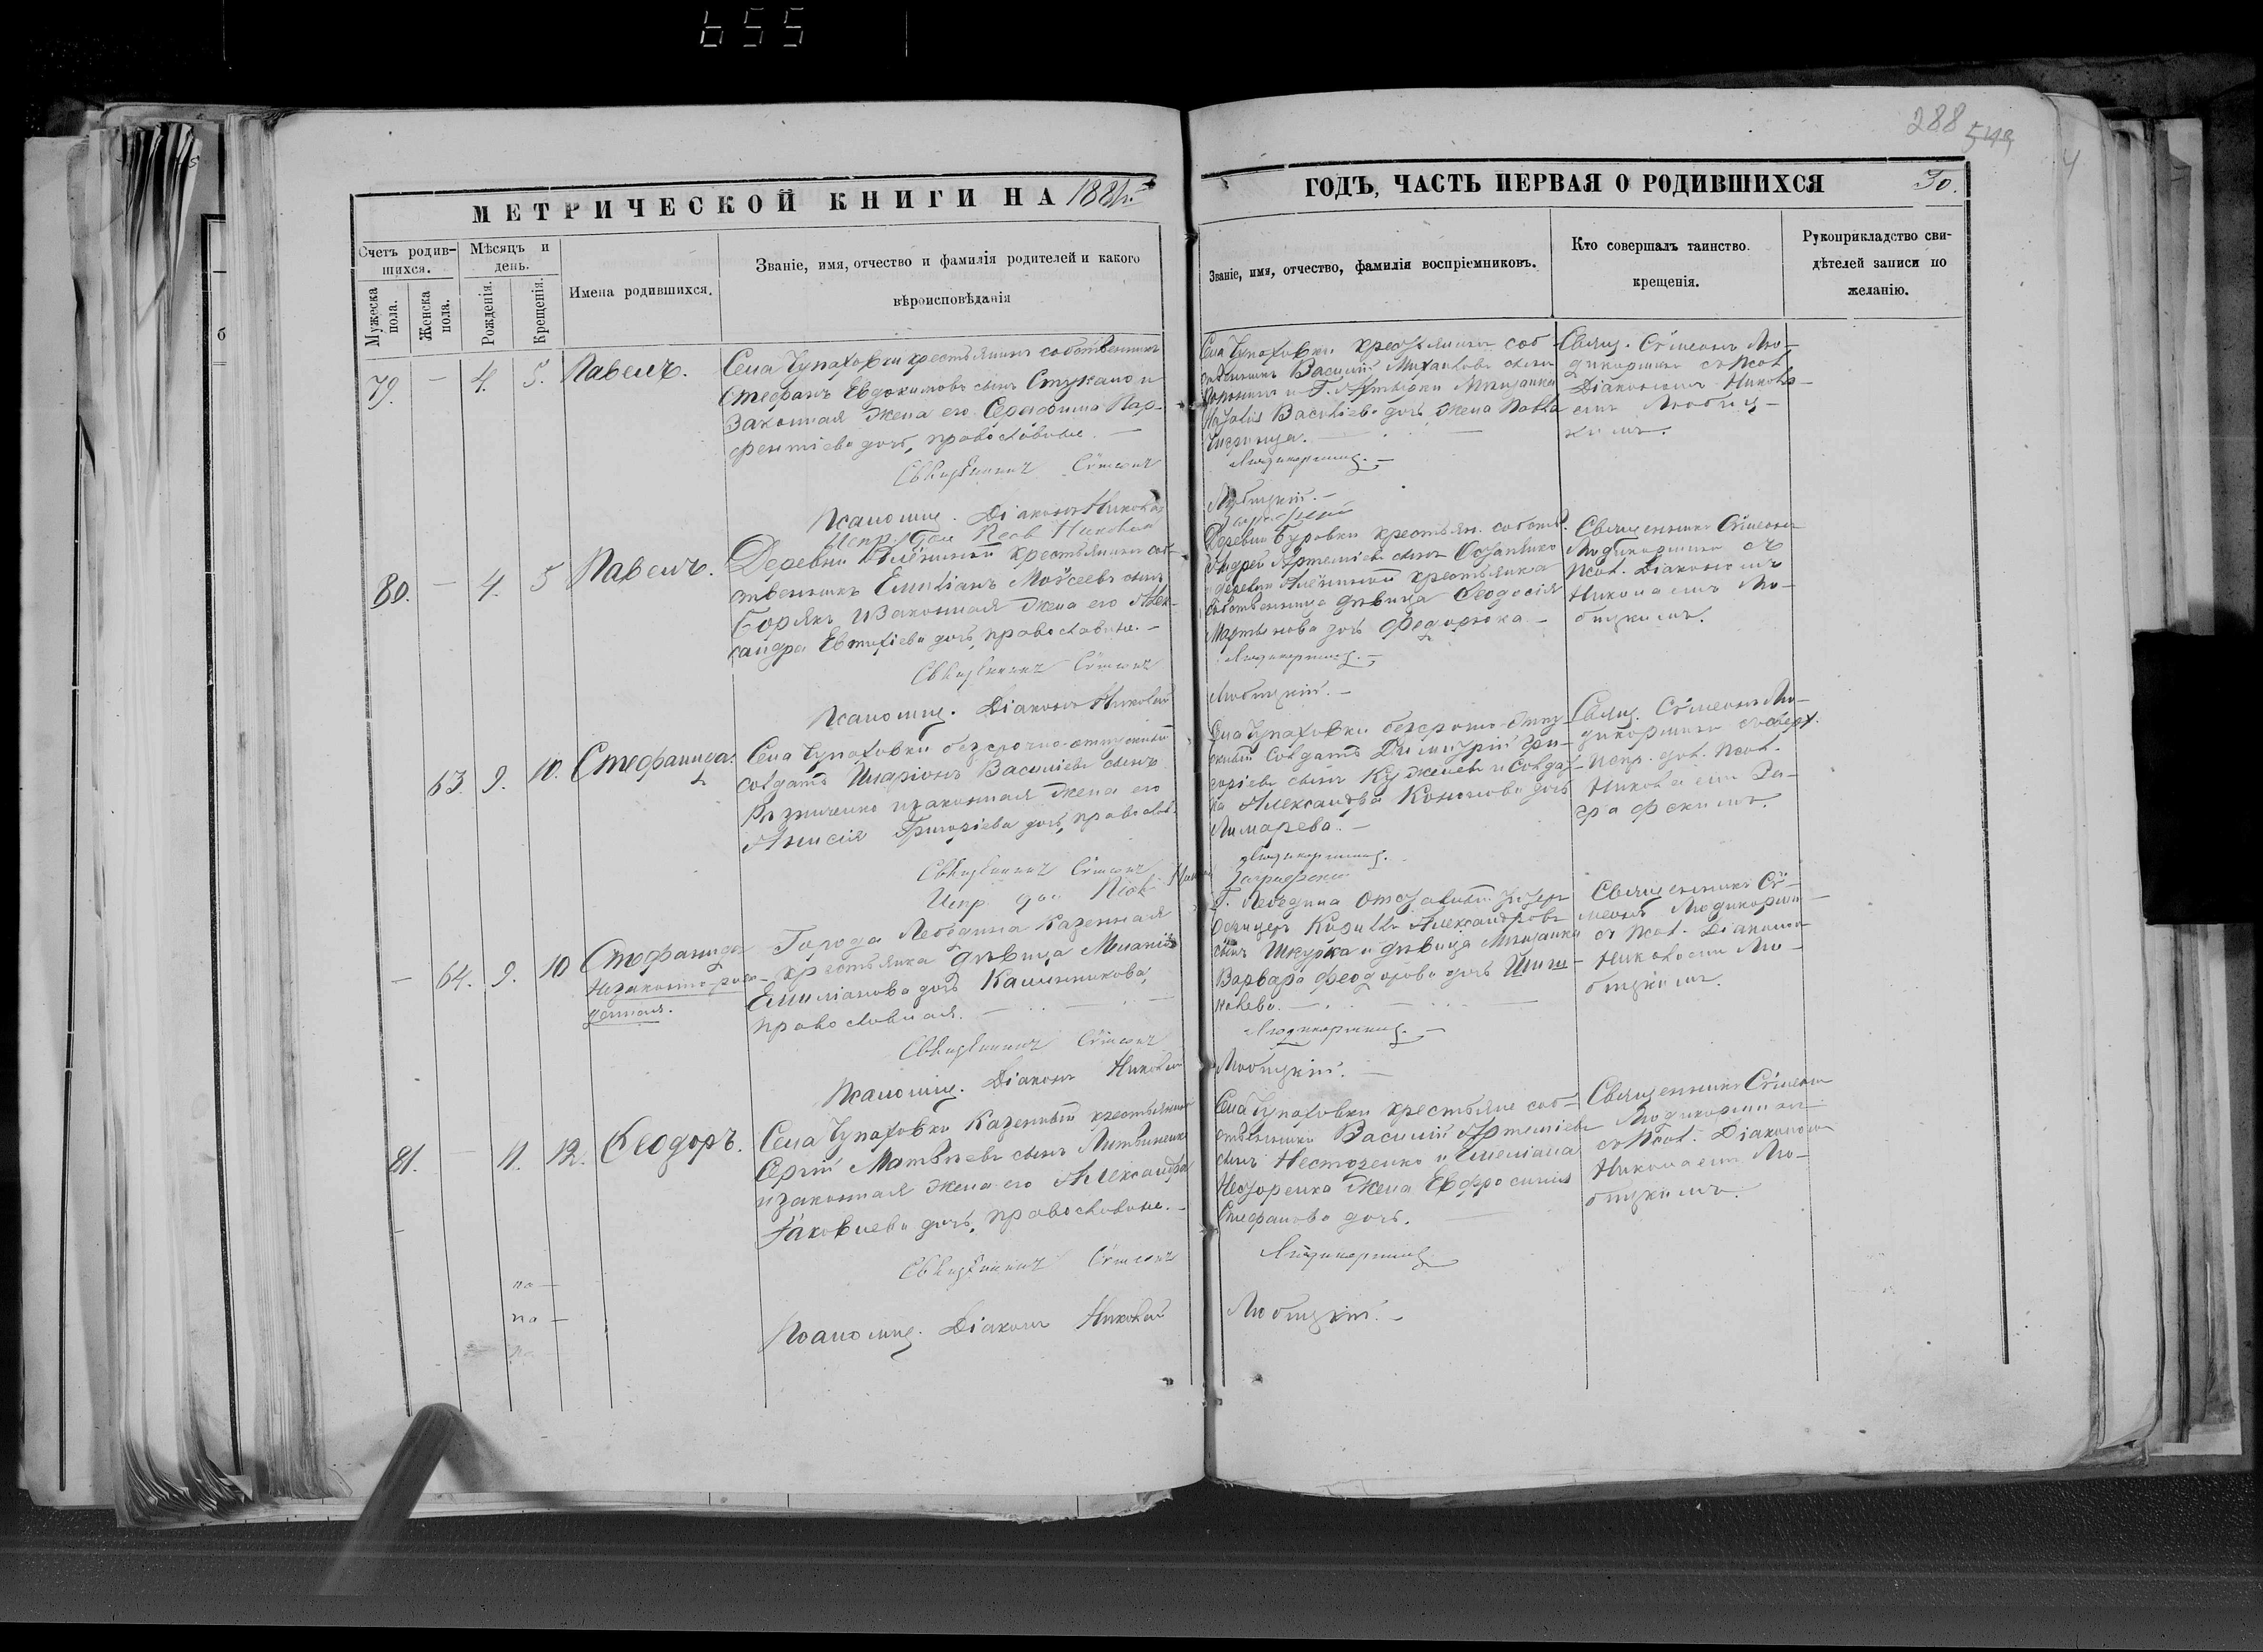 655
288 549
4
МЕТРИЧЕСКОЙ КНИГИ НА 1881й
ГОДЪ, ЧАСТЬ ПЕРВАЯ О РОДИВШИХСЯ
30.
Счетъ родив-
шихся.
Мужеска пола.
Женска пола.
Мѣсяцъ и день.
Рожденія.
Крещенія.
Имена родившихся.
Званіе, имя, отчество и фамилія родителей и какого
вѣроисповѣданія
Званіе, имя, отчество, фамилія воспріемниковъ.
Кто совершалъ таинство
крещенія.
Рукоприкладство сви-
дѣтелей записи по
желанію.
79. — 4. 5. Павелъ.
Села Чупаховки крестьянинъ собственникъ
Стефанъ Евдокимовъ сынъ Стукало и
законная жена его Серафима Пар-
фентіева дочь, православные. —
Священникъ Сѵмеонъ
Псаломщ. Діаконъ Николай
Села Чупаховки крестьянинъ соб-
ственникъ Василій Михаиловъ сынъ
и Г. Ахтырки Мѣщанки
Наталія Васильева дочь жена Павла
Людикормищ. —
Любицкій. —
Свящ. Сѵмеонъ Лю-
дикорминъ съ Псал.
Діакономъ Никола-
емъ Любиц-
кимъ.
Испр. дол. Псал. Николай
Заграфскій
80. — 4. 5 Павелъ.
Деревни Алёшиной крестьянинъ соб-
твенникъ Емиліанъ Моѵсеевъ сынъ
Борякъ и законная жена его Алек-
сандра Евтихіева дочь, православные. —
Священникъ Сѵмеонъ
Псаломщ. Діаконъ Николай
Деревни Буровки крестьян. собств.
Андрей Артеміевъ сынъ Остапенко
и деревни Алёшиной крестьянка
собственница дѣвица Ѳеодосія
Мартынова дочь Федорюка —
Людикормищ. —
Любицкій. —
Священникъ Сѵмеонъ
Людикорминъ съ
Псал. Діакономъ
Николаемъ Лю-
бицкимъ.
63. 9. 10. Стефанида.
Села Чупаховки безсрочно-отпускный
солдатъ Иларіонъ Василіевъ сынъ
Рѣзниченко и законная жена его
Анисія Григоріева дочь, православ.
Священникъ Сѵмеонъ
Испр. дол. Псал. Никол
Села Чупаховки безсрочно-отпу-
скный солдатъ Димитрій Гри-
горіевъ сынъ Кужелевъ и солдат-
ка Александра Кононова дочь
Лимарева. —
Людикормищ.
Заграфскій
Свящ. Сѵмеонъ Лю-
дикорминъ съ сверх.
Испр. дол. Псал.
Николаемъ За-
графскимъ.
— 64. 9. 10 Стефанида
незаконно-рож-
денная.
Города Лебедина казенная
крестьянка дѣвица Меланія
Емиліанова дочь Калинникова,
православная. —
Священникъ Сѵмеонъ
Псаломщ. Діаконъ Николай
Г. Лебедина отставный Унтеръ
Офицеръ Кириллъ Александровъ
сынъ Шкурка и дѣвица Мѣщанка
Варвара Феодорова дочь Шиш-
Людикормищ. —
Любицкій. —
Священникъ Сѵ-
меонъ Людикормин
съ Псал. Діакономъ
Николаемъ Лю-
бицкимъ.
81. — 11. 12. Ѳеодоръ.
Села Чупаховки казенный крестьянинъ
Сергій Матѳѣевъ сынъ Литвиненко
и законная жена его Александра
Іаковлева дочь, православные. —
Священникъ Сѵмеонъ
Псаломщ. Діаконъ Николай
Села Чупаховки крестьяне соб-
ственники Василій Артеміевъ
сынъ Несторенко и Емеліана
Несторенка жена Евфросинія
Стефанова дочь. —
Людикормищ
Любицкій. —
Священникъ Сѵмеонъ
Людикорминъ
съ Псал. Діакономъ
Николаемъ Лю-
бицкимъ.
па —
па —
па